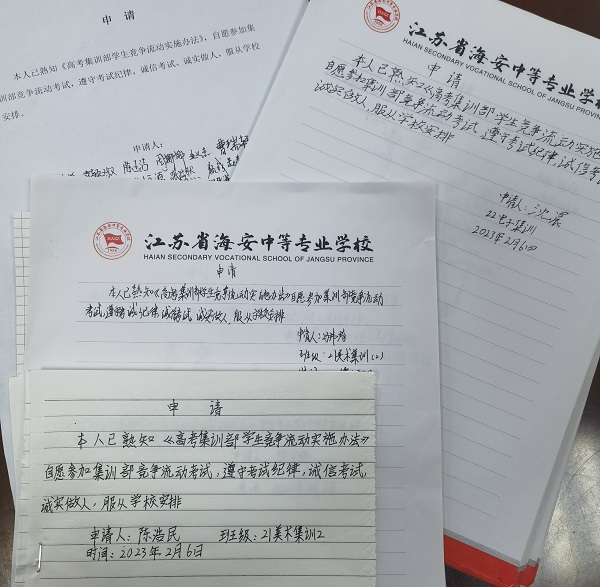 申 请
本人已熟知《高考集训部学生竞争流动实施办法》，自愿参加集
训部竞争流动考试，遵守考试纪律，诚信考试、诚实做人，服从学校
安排。
申请人：
江苏省海安中等专业学校
HAIAN SECONDARY VOCATIONAL SCHOOL OF JANGSU PROVINCE
申请
本人已熟知《高考集训部学生竞争流动实施
自愿参加集训部竞争流动考试，遵守考试纪律，诚信考
诚实做人，服从学校安排
申请人：沈
22电子集训
2023年2月6日
江苏省海安中等专业学校
HAIAN SECONDARY VOCATIONAL SCHOOL OF JANGSU PROVINCE
申请
本人已熟知《高考集训部学生竞争流动实施办法》自愿参加集训部竞争流动
考试，遵守纪律，诚信考试，诚实做人，服从学校安排
申请人：
班级：21美术集训(2)
申 请
本人已熟知《高考集训部学生竞争流动实施办法》
自愿参加集训部竞争流动考试，遵守考试纪律，诚信考试，
诚实做人，服从学校安排
申请人：陈浩民 班级：21美术集训2
时间：2023年2月6日